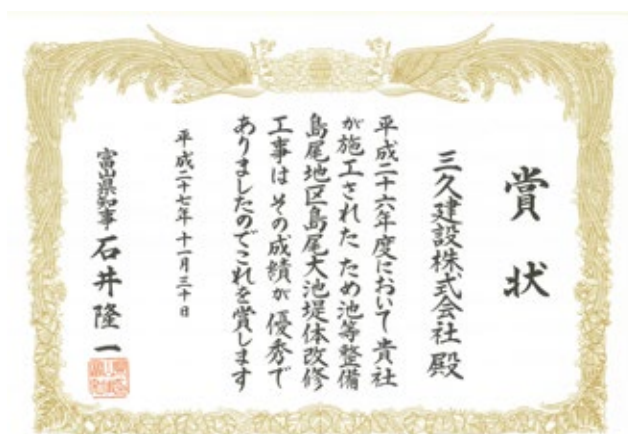 賞状
三久建設株式会社殿
平成二十六年度において貴社
が施工された ため池等整備
島尾地区島尾大池堤体改修
工事は その成績が 優秀で
ありましたのでこれを賞します
平成二十七年十一月三十日
富山県知事 石井隆一